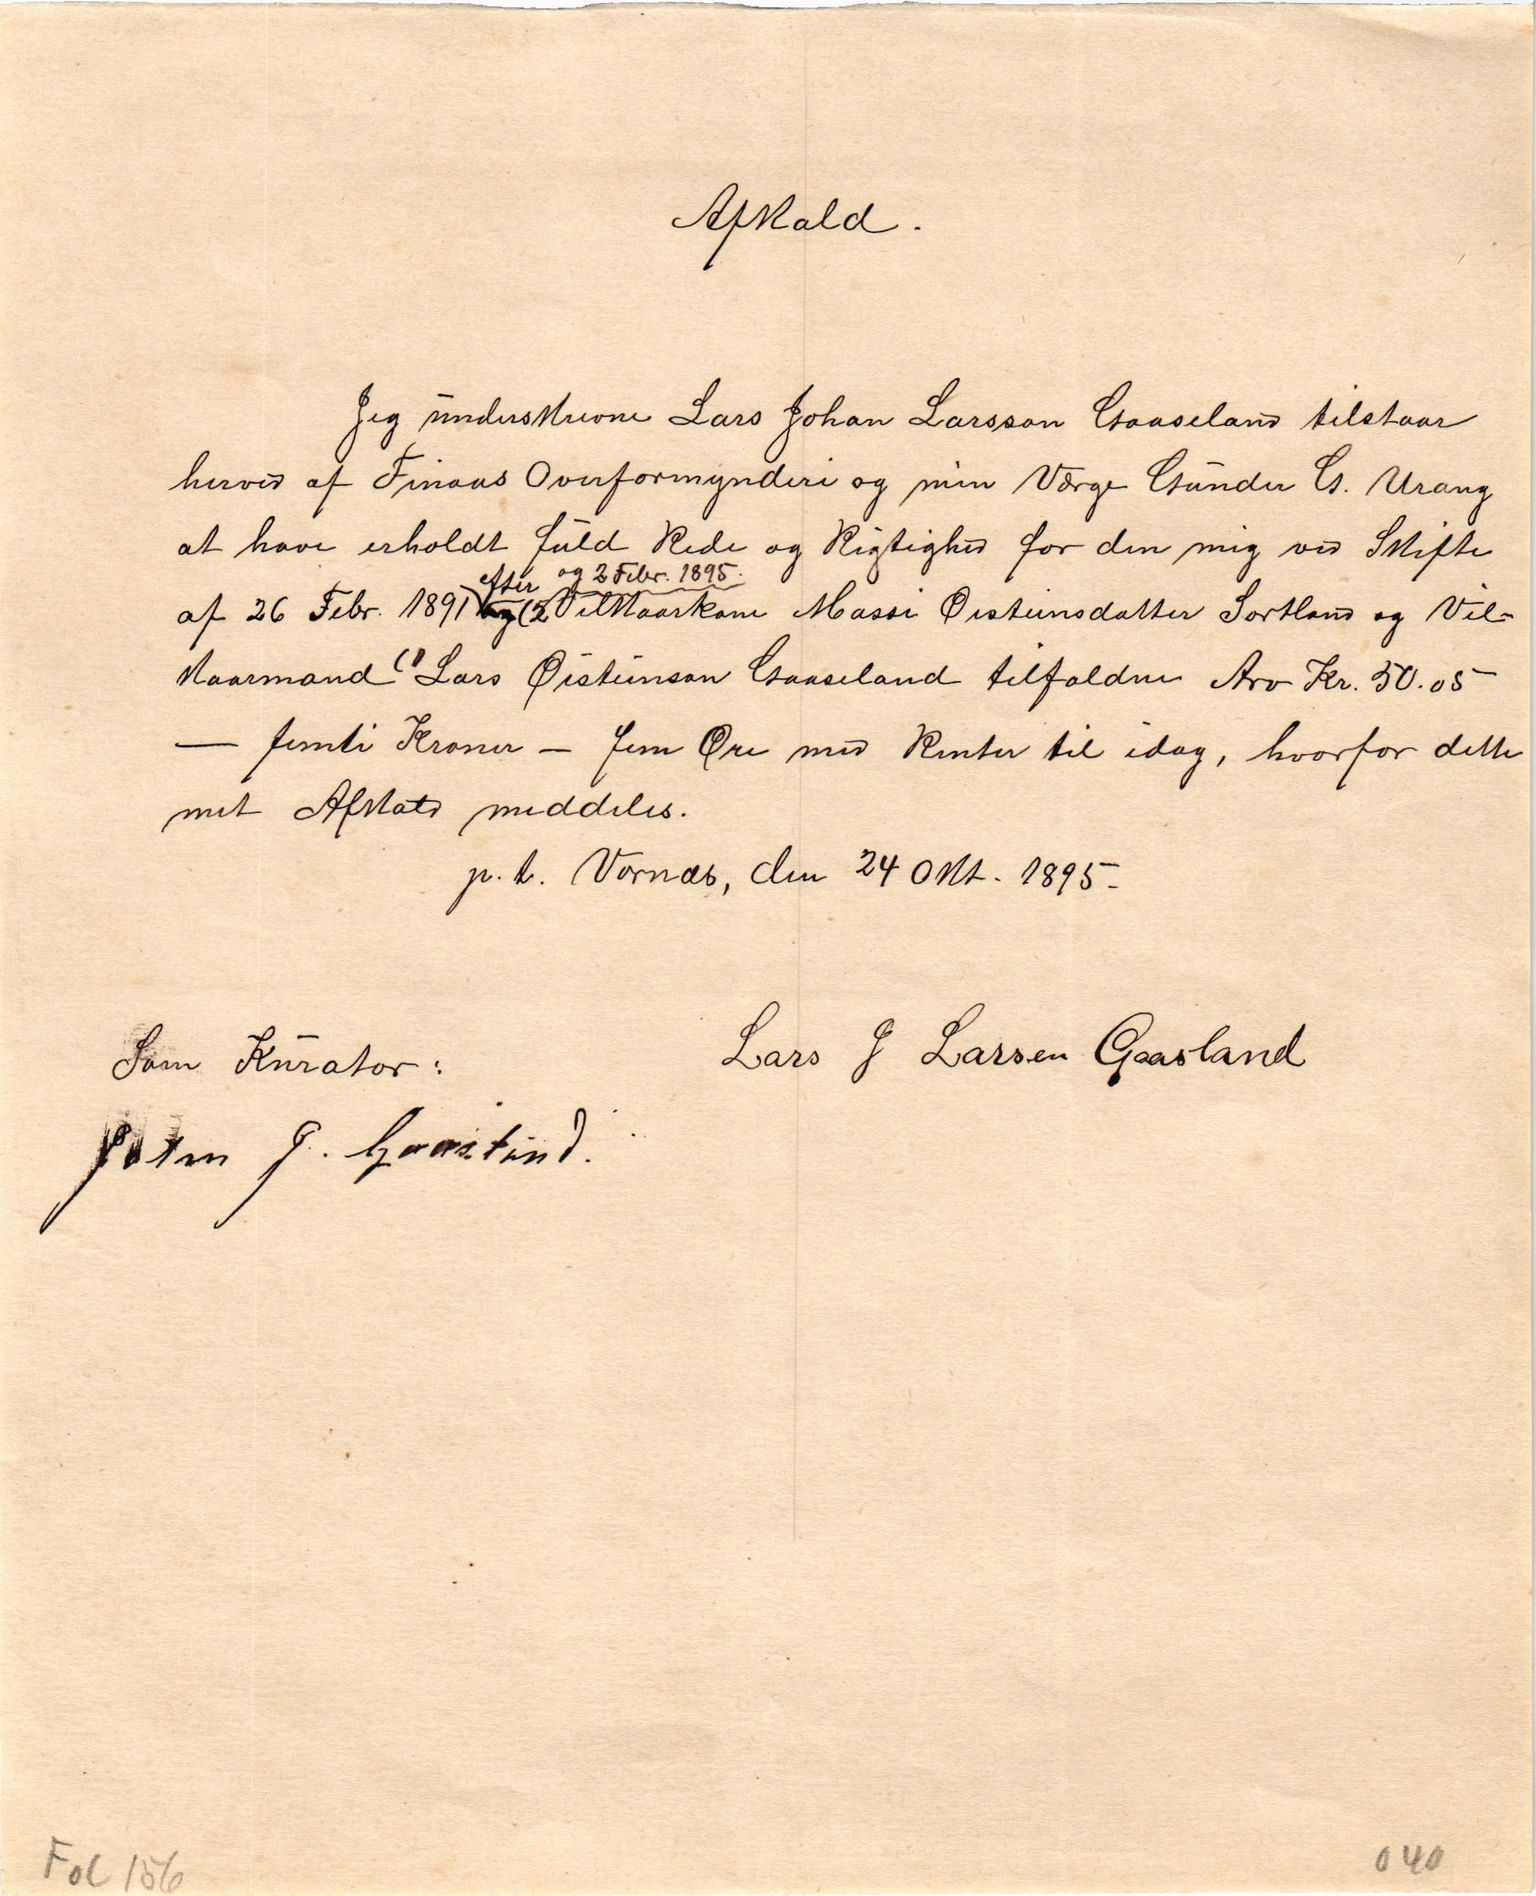 Afkald.
Jeg underskrevne Lars Johan Larsson Gaaseland tilstaar
herved af Finaas Overformynderi og min Værge Gunder G. Urang
at have erholdt fuld Rede og Rigtighed for den mig ved Skifte
efter og 2 Febr. 1895.
af 26 Febr. 1891 og (2 Vilkaarkone Massi Øisteinsdatter Sortland og Vil-
kaarmand (1 Lars Øisteinson Gaaseland tilfaldne Arv Kr. 50.05
— femti Kroner — fem Øre med Renter til idag, hvorfor dette
mit Afkald meddeles.
p. t. Vornæs, den 24 Okt. 1895.
Lars J Larsen Gaasland
Som Kurator:
J. Gaasland.
Fol 156
040